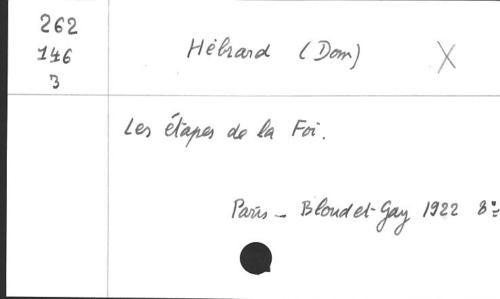 262
146
3
Hébrard (Dom) X
Les étapes de la Foi.
Paris - Bloud et Gay 1922 8º